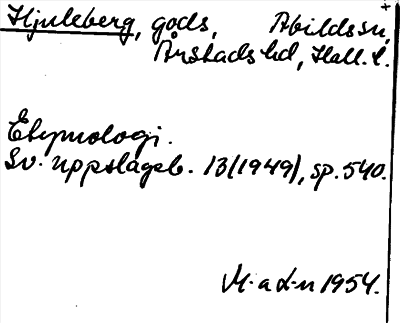 Hjuleberg, gods, Abildssn,
Årstads hd, Hall. l.
Etymologi.
Sv. uppslagsb. 13(1949), sp. 540.
1954.